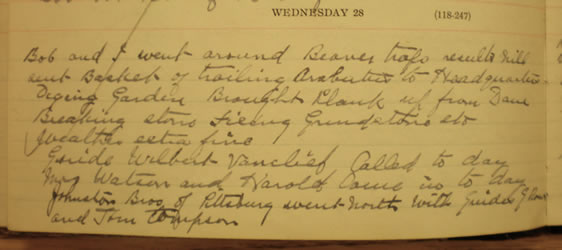 WEDNESDAY 28 (118-247)
Bob and I went around Beaver traps results Nill
sent Basket of trailing Arabutus to Headquarters
Diging Garden Brought Plank up from Dam
Breaking stone Fixing Grindstone etc
Weather extra fine
Guide Wilbert Vanclief Called to day
Mrs Watson and Harold Came in to day
Johnston Bros. of Pittsburg went North with Guides
and Tom Tompson